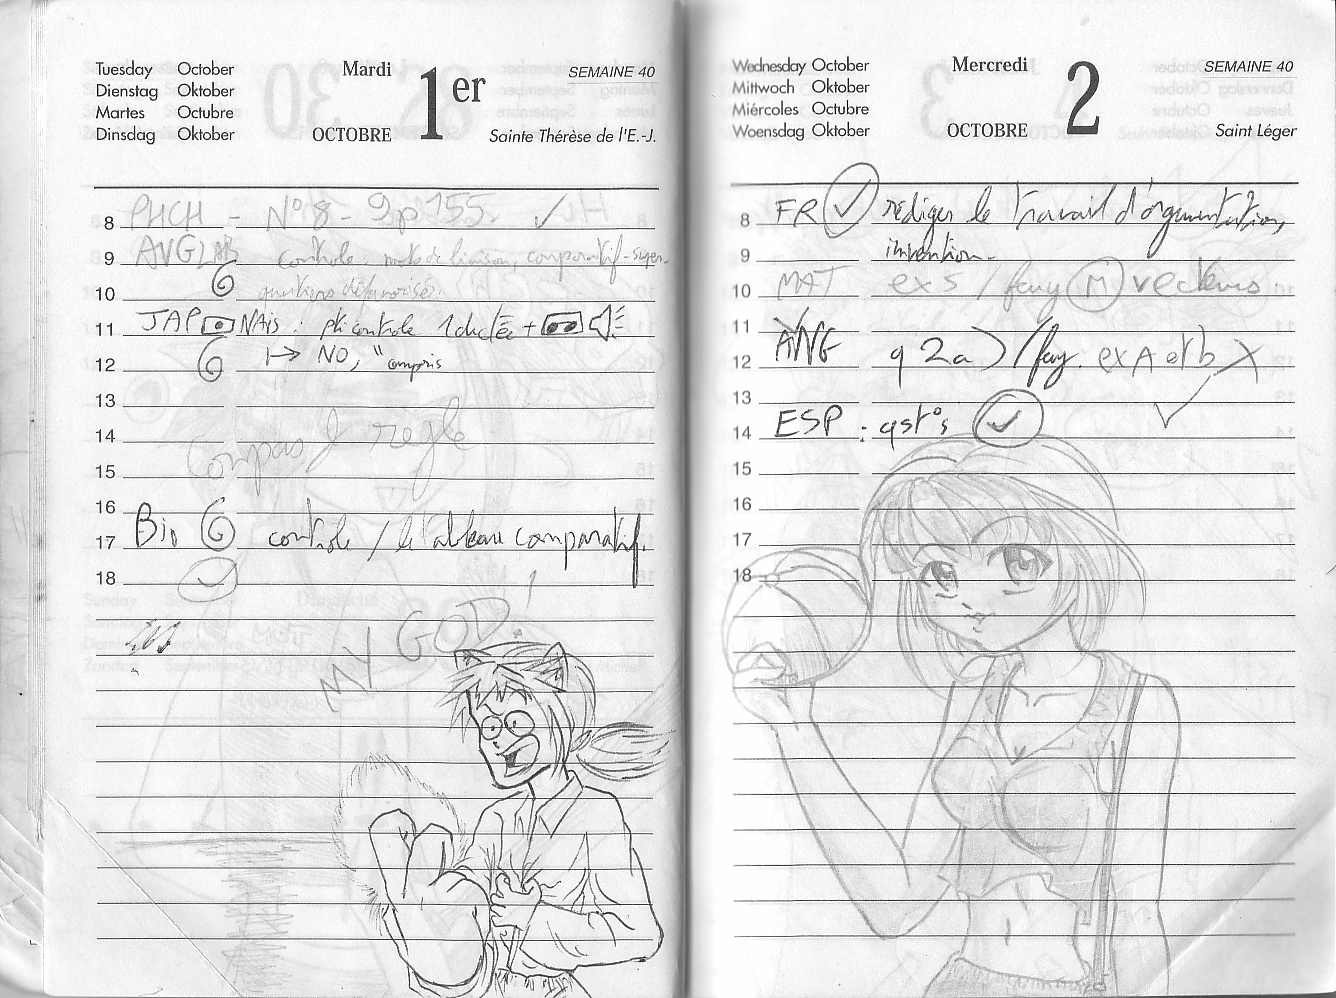 Tuesday October
Dienstag Oktober
Martes Octubre
Dinsdag Oktober
Mardi
OCTOBRE
1er
SEMAINE 40
Sainte Thérèse de l'E.-J.
8 PHCH - N°8 - 9p155. ✓
9 ANGLAIS contrôle: mots de liaison, comparatif-super-
10
11 JAPONAIS: pti contrôle 1 dictée +
12 ↦ NO, "compris
13
14 Compas & règle
15
16
17 Bio contrôle / le tableau comparatif.
18 ✓
MY GOD!
Wednesday October
Mittwoch Oktober
Miércoles Octubre
Woensdag Oktober
Mercredi
OCTOBRE
2
SEMAINE 40
Saint Léger
8 FR ✓ rédiger le travail d'argumentation,
9 invention.
10 MAT exs / feuy M vecteurs
11
12 ANG q 2a) / feuy. ex A et b X
13
14 ESP : qst°s ✓
15
16
17
18